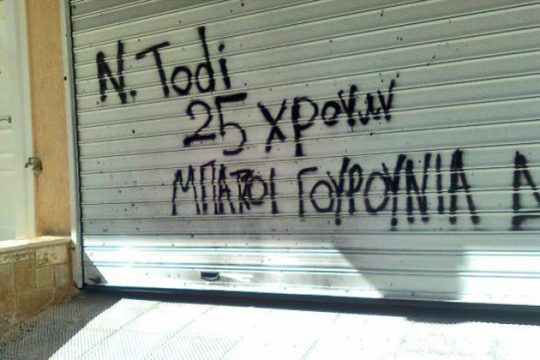 N. Todi
25 ΧΡΟΝΩΝ
ΜΠΑΤΣΟΙ ΓΟΥΡΟΥΝΙΑ Δ